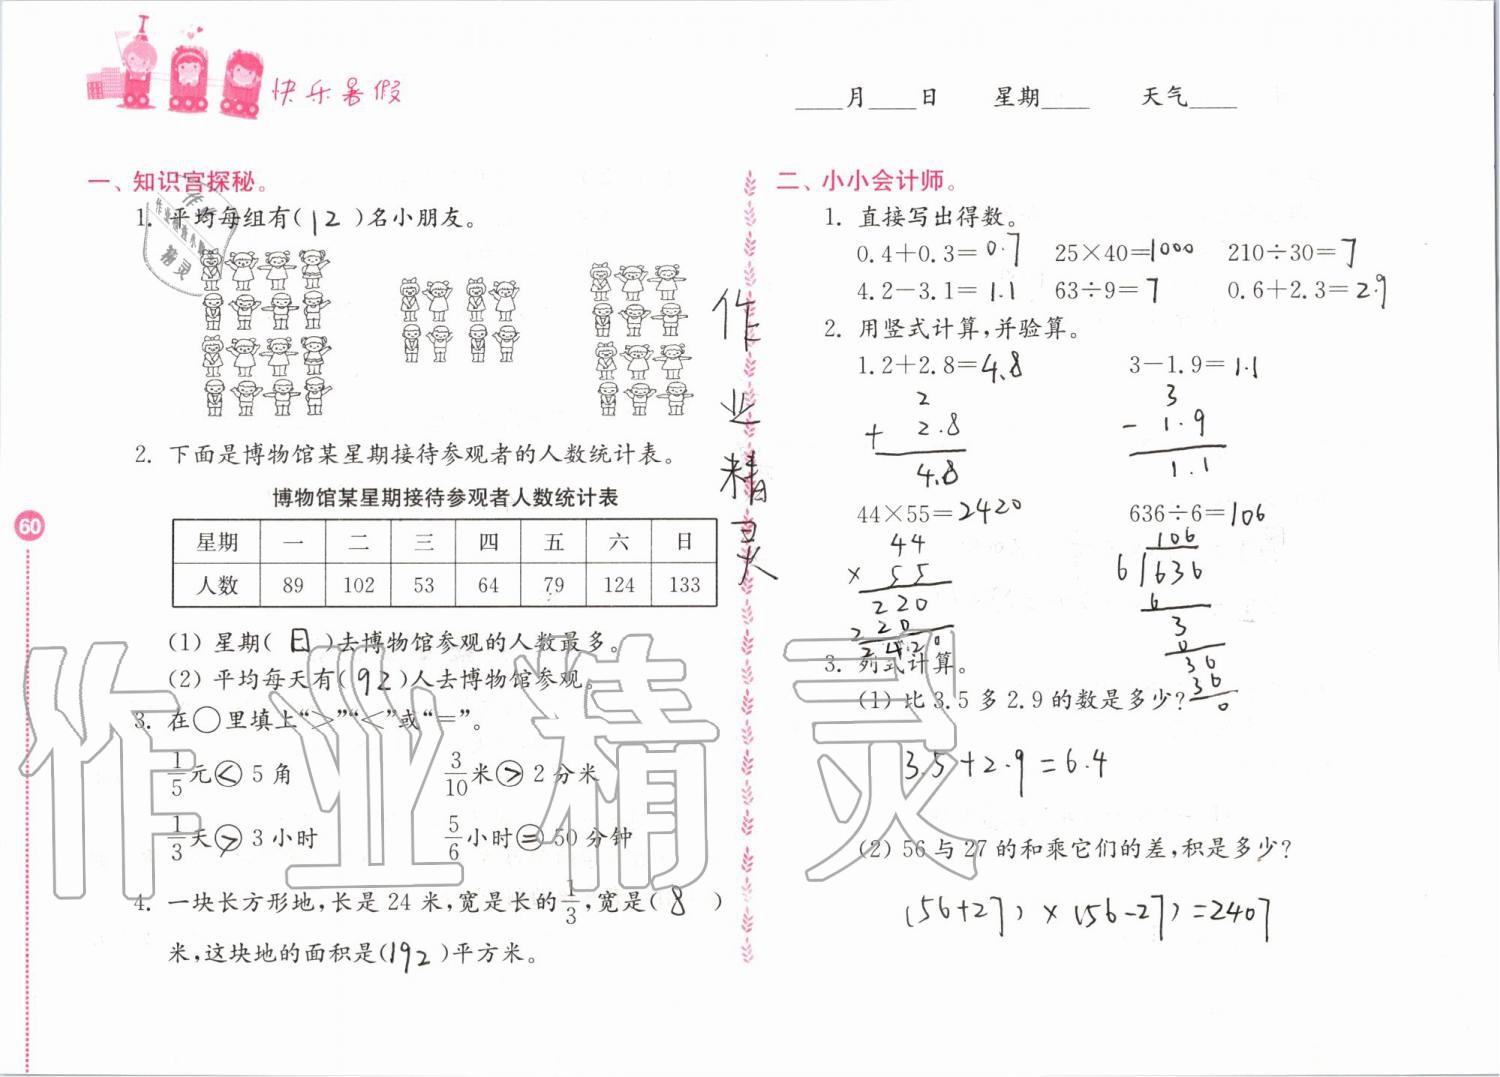 快乐暑假
____月____日 星期____ 天气____
一、知识宫探秘。
1. 平均每组有(12)名小朋友。
2. 下面是博物馆某星期接待参观者的人数统计表。
博物馆某星期接待参观者人数统计表
星期 一 二 三 四 五 六 日
人数 89 102 53 64 79 124 133
(1) 星期(日)去博物馆参观的人数最多。
(2) 平均每天有(92)人去博物馆参观。
3. 在○里填上“>”“<”或“=”。
1/5元<5角 3/10米>2分米
1/3天>3小时 5/6小时=50分钟
4. 一块长方形地,长是24米,宽是长的1/3,宽是(8)
米,这块地的面积是(192)平方米。
60
作业精灵
二、小小会计师。
1. 直接写出得数。
0.4+0.3=0.7 25×40=1000 210÷30=7
4.2−3.1=1.1 63÷9=7 0.6+2.3=2.9
2. 用竖式计算,并验算。
1.2+2.8=4.8 3−1.9=1.1
2 3
+ 2.8 − 1.9
4.8 1.1
44×55=2420 636÷6=106
44 106
× 55 6)636
220 6
220 3
2420 0
36
36
0
3. 列式计算。
(1) 比3.5多2.9的数是多少?
3.5+2.9=6.4
(2) 56与27的和乘它们的差,积是多少?
(56+27)×(56-27)=2407
作业精灵